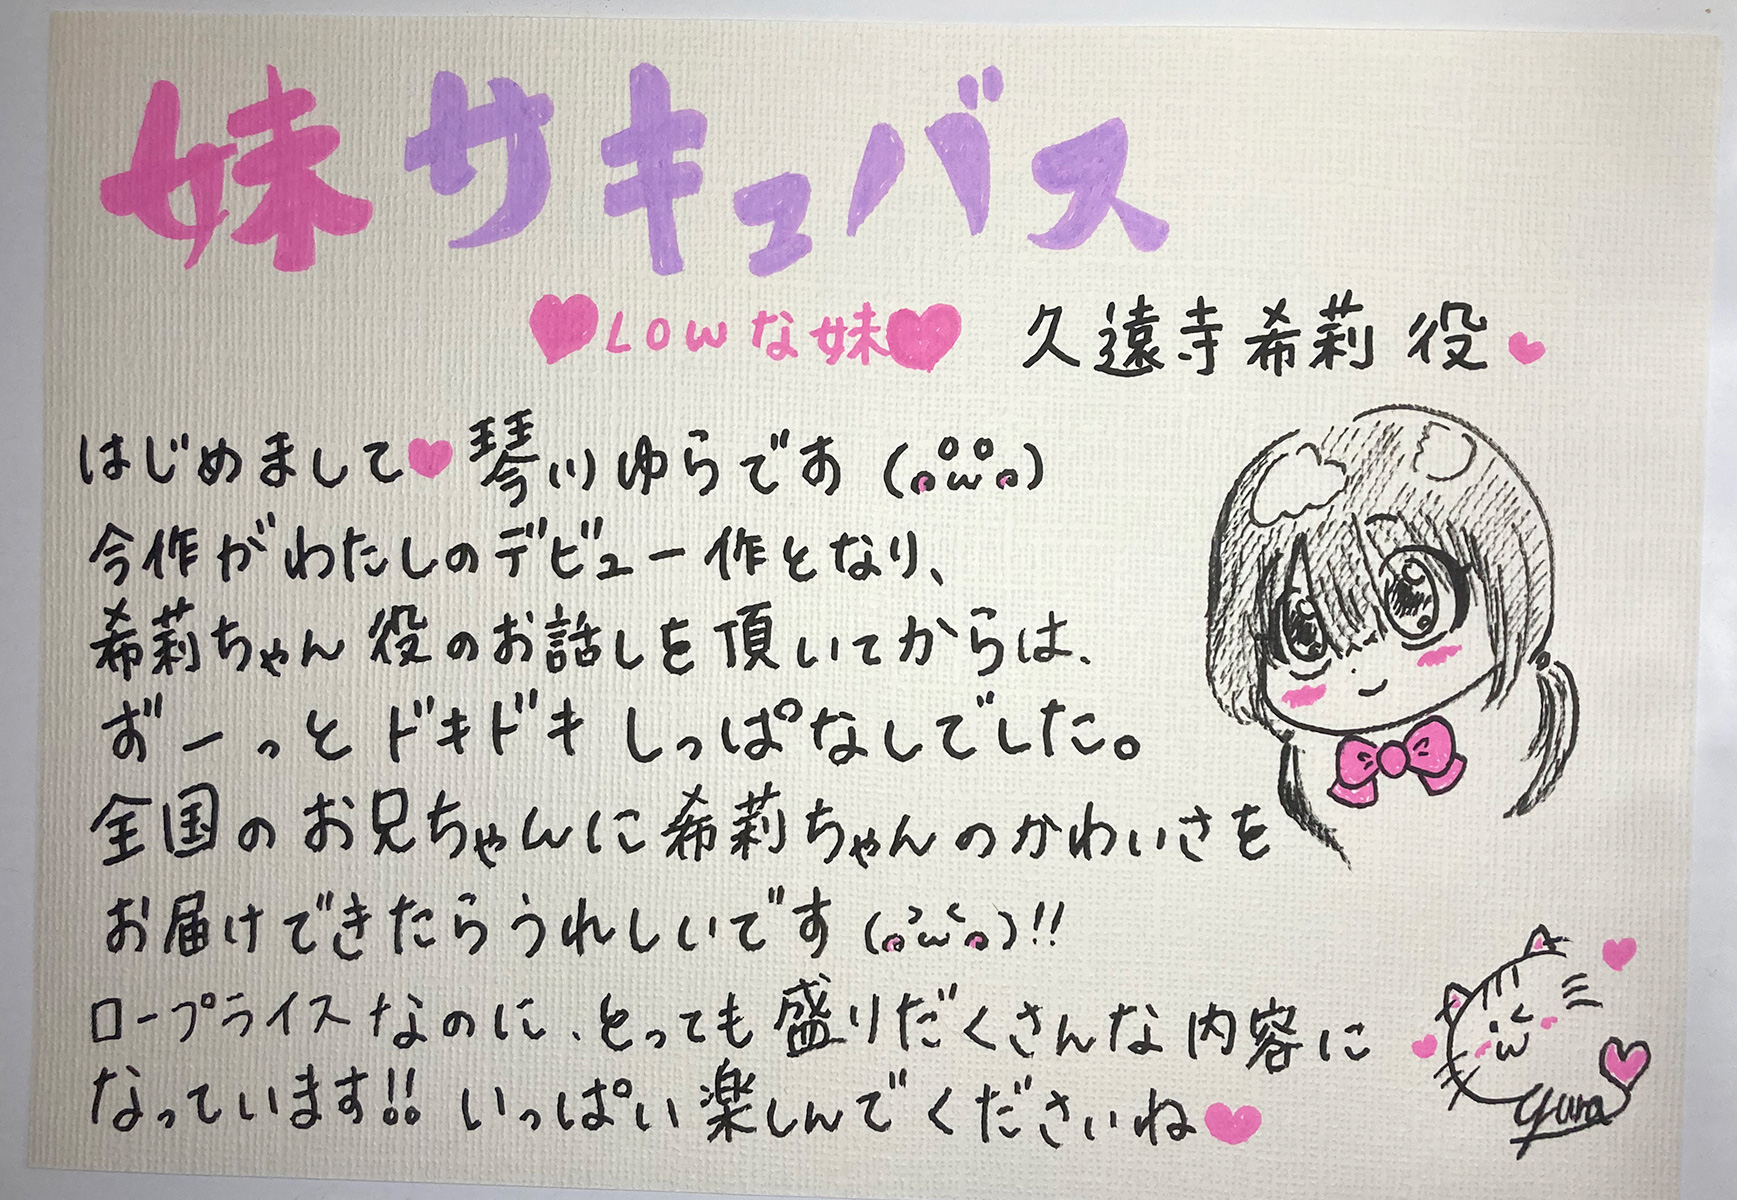 妹サキュバス
♥LOWな妹♥ 久遠寺希莉 役♥
はじめまして♥琴川ゆらです(。°ω°。)
今作がわたしのデビュー作となり、
希莉ちゃん役のお話しを頂いてからは、
ずーっとドキドキしっぱなしでした。
全国のお兄ちゃんに希莉ちゃんのかわいさを
お届けできたらうれしいです(。>ω<。)!!
ロープライスなのに、とっても盛りだくさんな内容に
なっています!! いっぱい楽しんでくださいね♥
yura